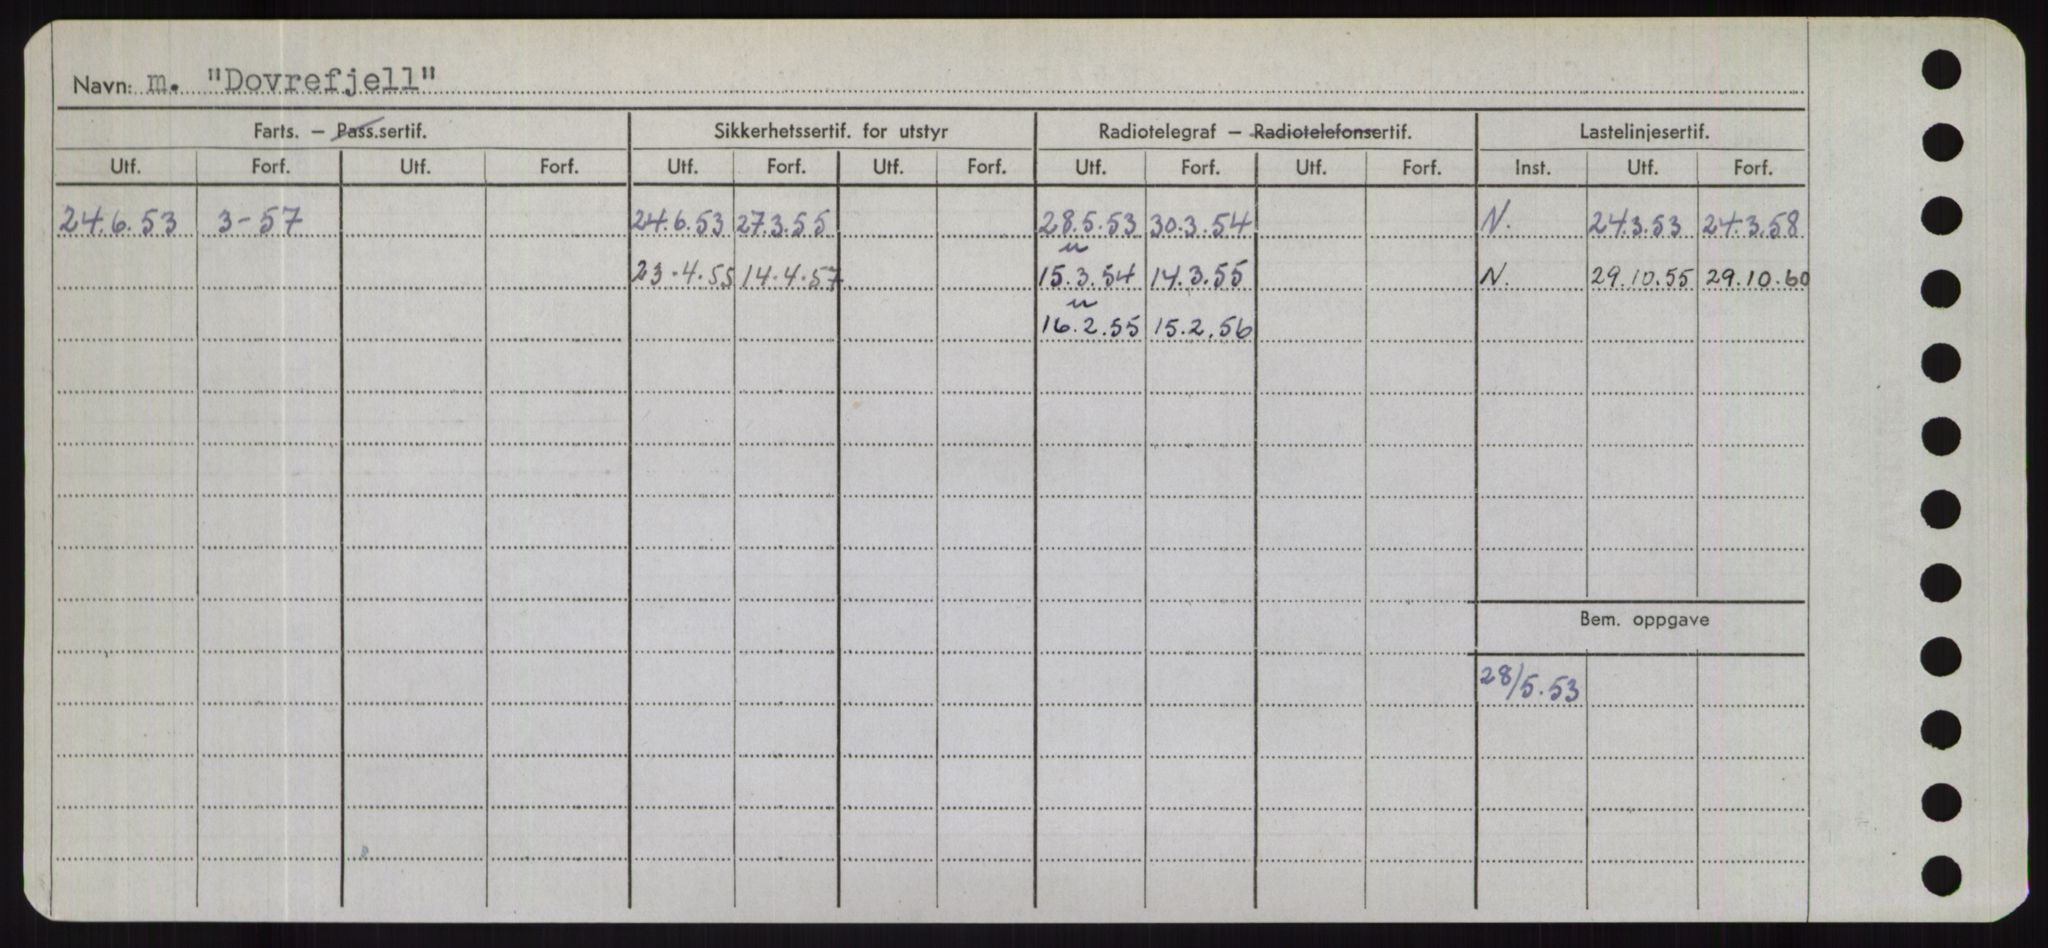 Navn: m. "Dovrefjell"
Farts. – Pass.sertif. Sikkerhetssertif. for utstyr Radiotelegraf – Radiotelefonsertif. Lastelinjesertif.
Utf. Forf. Utf. Forf. Utf. Forf. Utf. Forf. Utf. Forf. Utf. Forf. Inst. Utf. Forf.
24.6.53 3-57 24.6.53 27.3.55 28.5.53 30.3.54 N. 24.3.53 24.3.58
23.4.55 14.4.57 15.3.54 14.3.55 N. 29.10.55 29.10.60
16.2.55 15.2.56
Bem. oppgave
28/5.53